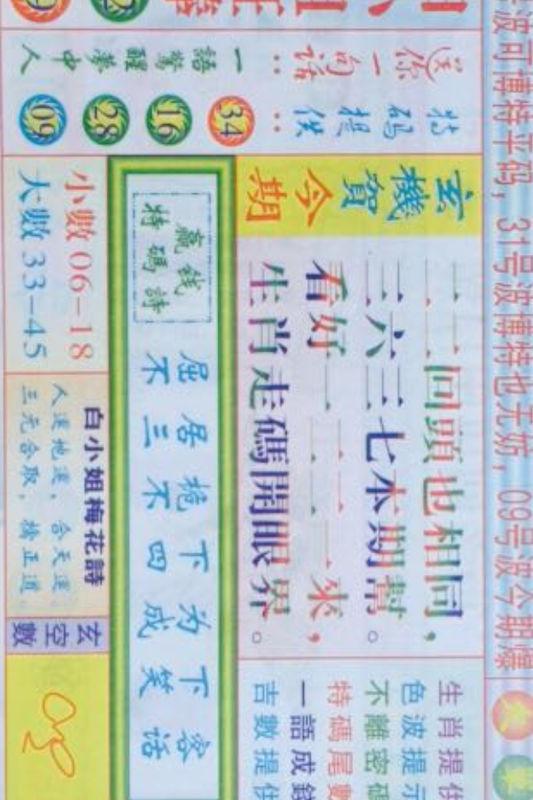 波可博特平码，31号波博特也无妨，09号波今期爆
送你一句話：
一語驚醒夢中人
特码提供：
34 16 28 09
玄機賀今期
一二回頭也相同，
三六三七本期幫。
看好一二二一來，
生肖走碼開眼界。
生肖提
色波提
不離密
特碼尾
一語成
吉數提
赢钱
特碼詩
屈居桅下为下客
不三不四成笑话
小數06-18
大數33-45
白小姐梅花詩
人運地運，合天運。
三元合取，擒正道。
玄空數